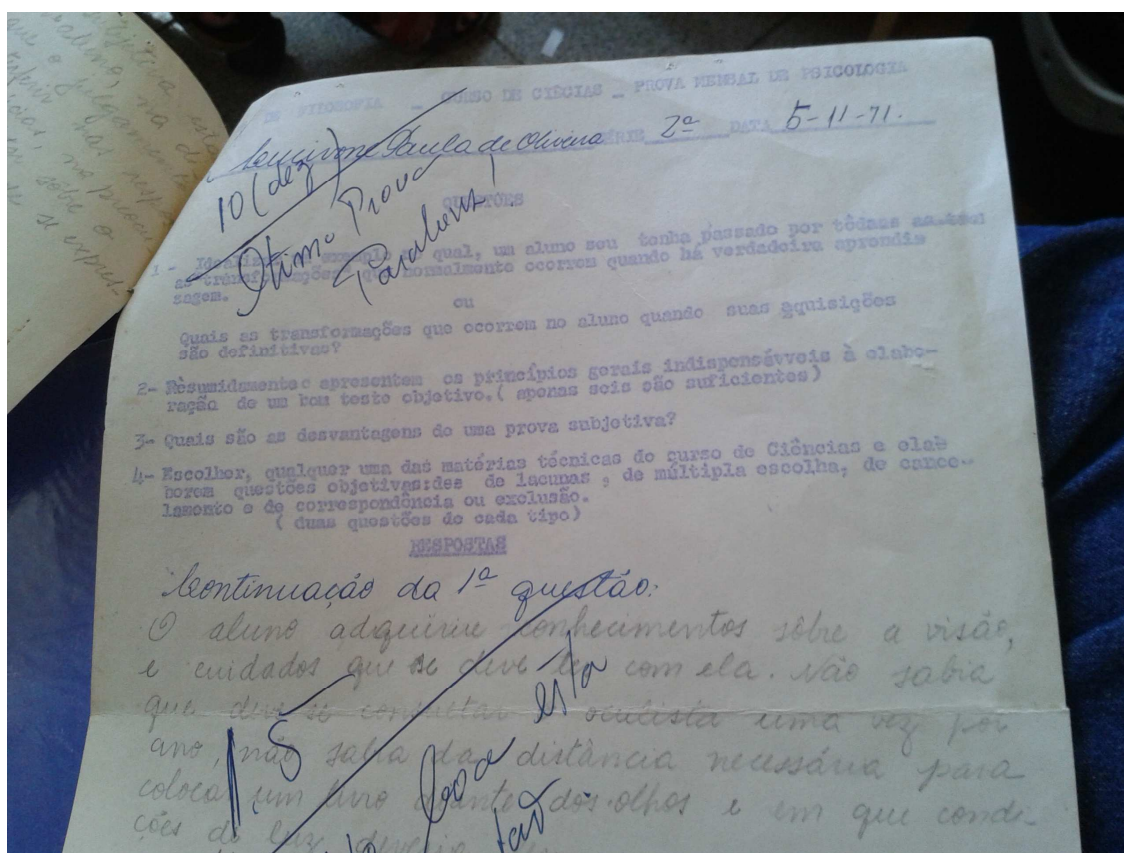 DE FILOSOFIA - CURSO DE CIÊCIAS - PROVA MENSAL DE PSICOLOGIA
Paula de Oliveira SÉRIE 2ª DATA 5-11-71.
10 (dez)
Ótima Prova
Parabens!
QUESTÕES
1 - exemplo qual, um aluno seu tenha passado por tôdas
as transformações que normalmente ocorrem quando há verdadeira aprendi
sagem.
ou
Quais as transformações que ocorrem no aluno quando suas aquisições
são definitivas?
2- Rèsumidamente apresentem os princípios gerais indispensávveis à elabo-
ração de um bom teste objetivo.( apenas seis são suficientes)
3- Quais são as desvantagens de uma prova subjetiva?
4- Escolher, qualquer uma das matérias técnicas do curso de Ciências e elab
borem questões objetivas:des de lacunas , de múltipla escolha, de cance-
lamento e de correspondência ou exclusão.
( duas questões de cada tipo)
RESPOSTAS
Continuação da 1ª questão:
O aluno adquiriu conhecimentos sôbre a visão,
e cuidados que se deve ter com ela. Não sabia
que deve se consultar o oculista uma vez por
ano, não sabia da distância necessária para
colocar um livro diante dos olhos e em que condi-
ções de luz deveria
1.5
boa esta